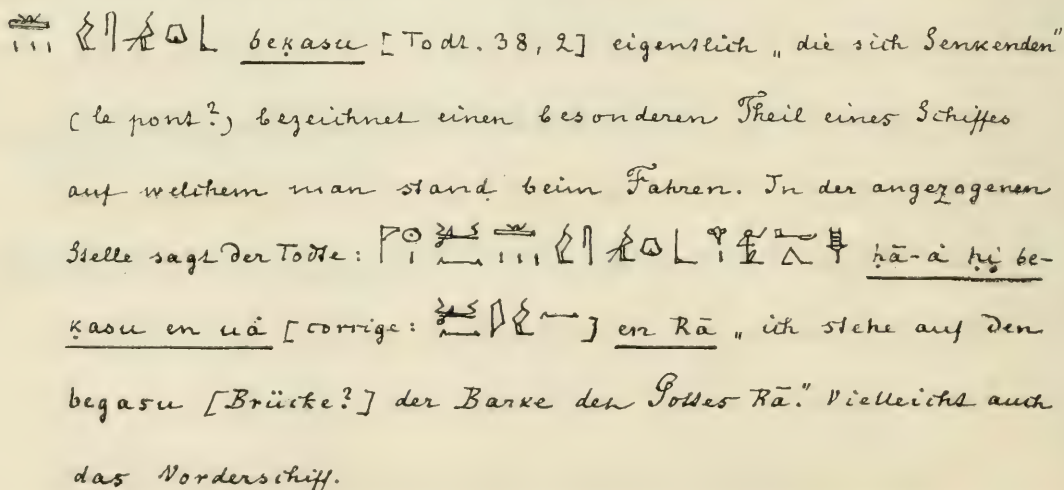 beḳasu [Todt. 38, 2] eigentlich „die sich Senkenden"
(le pont?) bezeichnet einen besonderen Theil eines Schiffes
auf welchem man stand beim Fahren. In der angezogenen
Stelle sagt der Todte: ḥā-ȧ ḥi̥ be-
ḳasu en uȧ [corrige: ] en Rā „ich stehe auf den
begasu [Brücke?] der Barke des Gottes Rā." Vielleicht auch
das Vorderschiff.